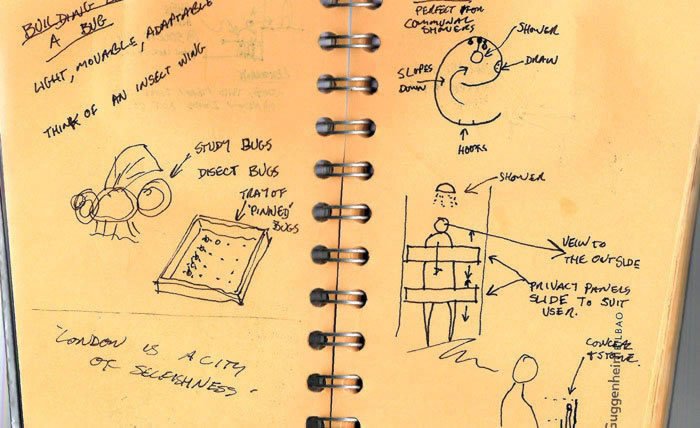 BUILDING
A BUG
LIGHT, MOVABLE, ADAPTABLE
THINK OF AN INSECT WING
STUDY BUGS
DISECT BUGS
TRAY OF
"PINNED"
BUGS
"LONDON IS A CITY
OF SELFISHNESS"
PERFECT FOR
COMMUNAL
SHOWERS
SHOWER
DRAIN
SLOPES
DOWN
HOOKS
SHOWER
VEIW TO
THE OUTSIDE
PRIVACY PANELS
SLIDE TO SUIT
USER.
uggenhei LBAO